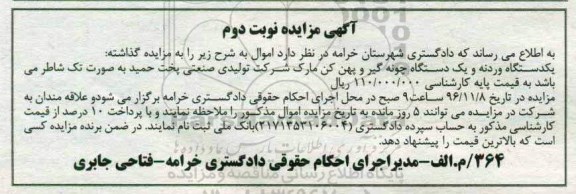 آگهی مزایده نوبت دوم
به اطلاع می رساند که دادگستری شهرستان خرامه در نظر دارد اموال به شرح زیر را به مزایده گذاشته:
یکدستگاه وردنه و یک دستگاه چونه گیر و پهن کن مارک شرکت تولیدی صنعتی پخت حمید به صورت تک شاطر می
باشد به قیمت پایه کارشناسی ۱۱۰/۰۰۰/۰۰۰ ریال
مزایده در تاریخ ۹۶/۱۱/۸ ساعت۹ صبح در محل اجرای احکام حقوقی دادگستری خرامه برگزار می شودو علاقه مندان به
شرکت در مزایده می توانند ۵ روز مانده به تاریخ مزایده اموال مذکور را ملاحظه نمایند و با پرداخت ۱۰ درصد از قیمت
کارشناسی مذکور به حساب سپرده دادگستری (۲۱۷۱۳۵۳۱۰۶۰۰۴)بانک ملی ثبت نام نمایند. در ضمن برنده مزایده کسی
است که بالاترین قیمت را پیشنهاد دهد.
۳۶۴/م.الف-مدیراجرای احکام حقوقی دادگستری خرامه-فتاحی جابری